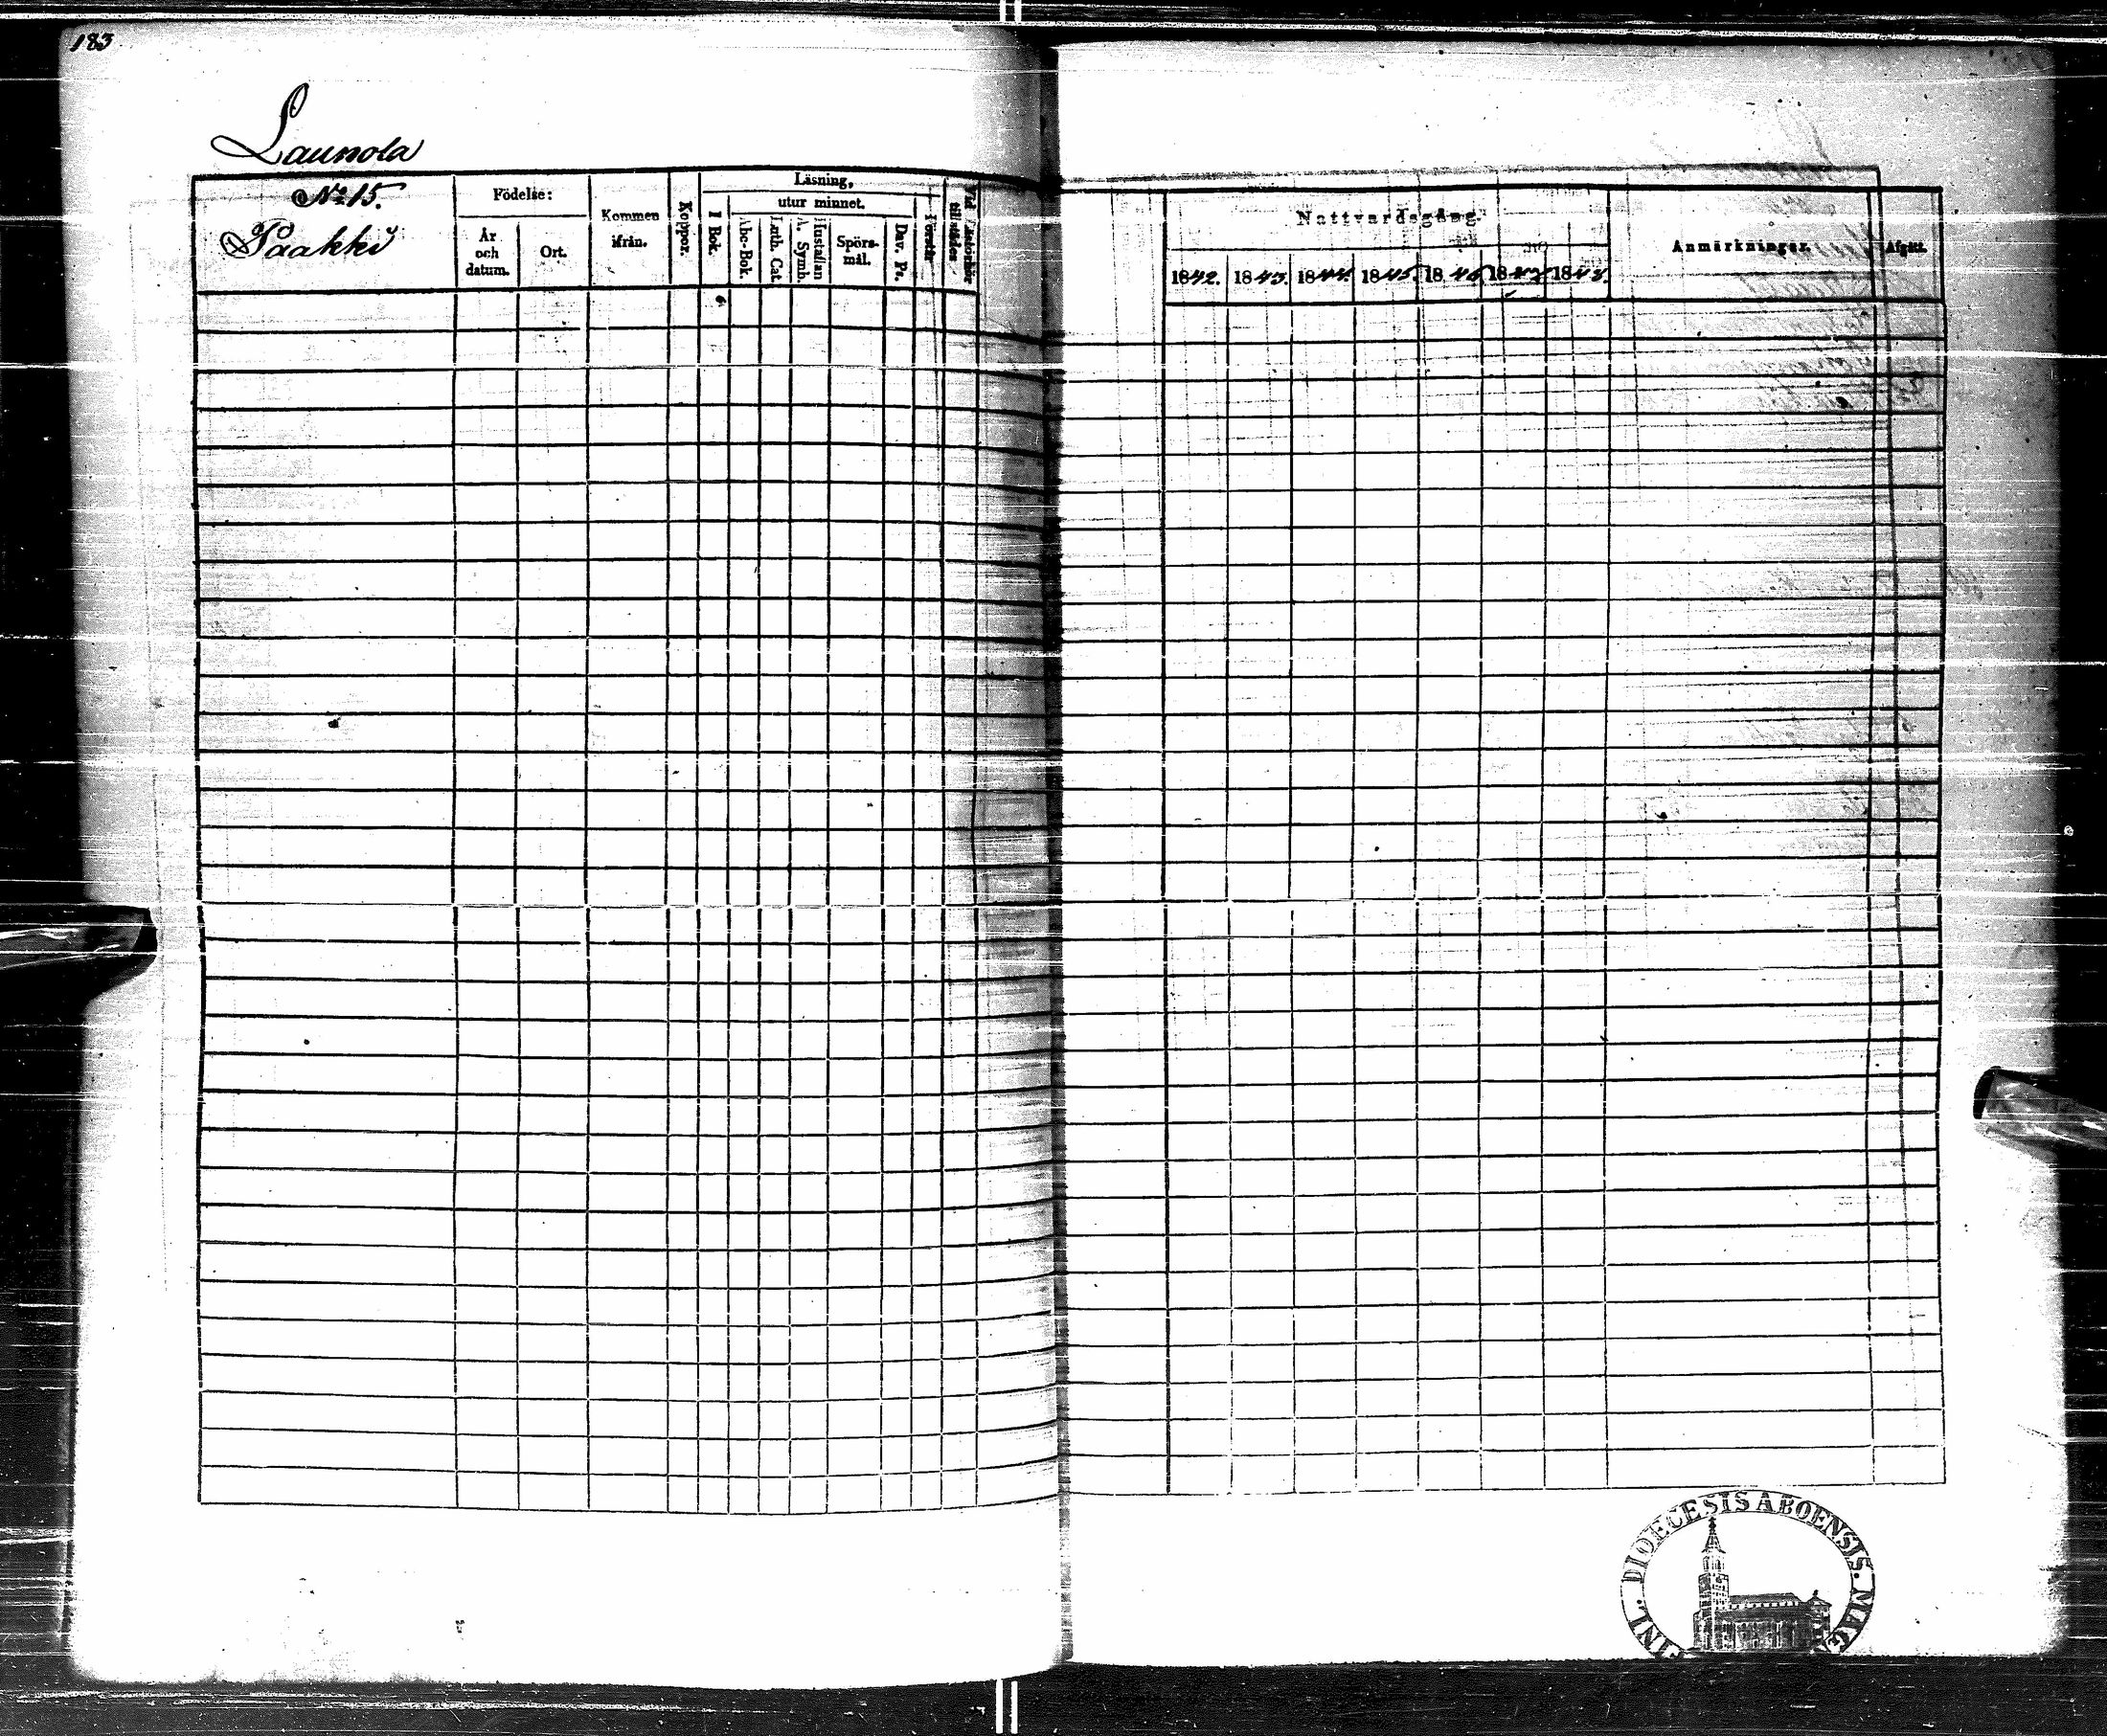 183
Launola
No 15.
Paakki
Födelse:
År
och
datum.
Ort.
Kommen
ifrån.
Koppor.
Läsning,
utur minnet.
I Bok.
Abc-Bok.
Luth. Cat.
Hustaflan
A. Symb.
Spörs-
mål.
Dav. Ps.
Förstår
Vid Läseförhör
tillstädes
Nattvardsgång.
1842. 1843. 1844. 1845. 1846. 1847 184
Anmärkningar.
Afgått.
DIOECESIS ABOENSIS. MAG